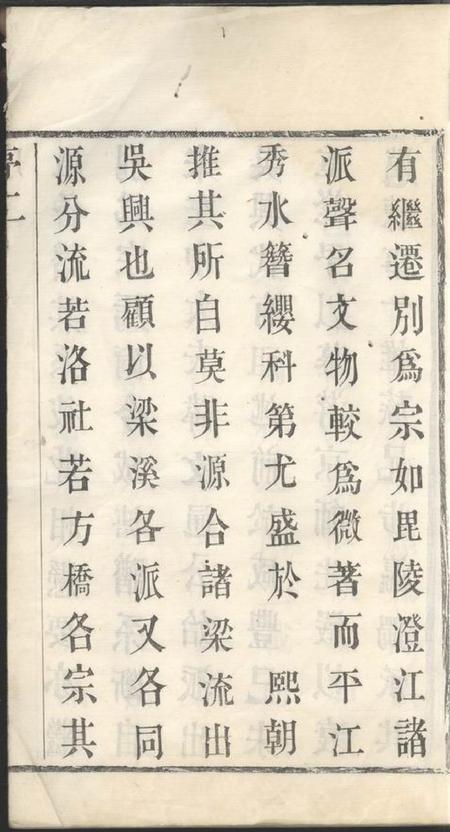 有繼遷別爲宗如毘陵澄江諸
派聲名文物較爲微著而平江
秀水簪纓科第尤盛於　熙朝
推其所自莫非源合諸梁流出
吳興也顧以梁溪各派又各同
源分流若洛社若方橋各宗其